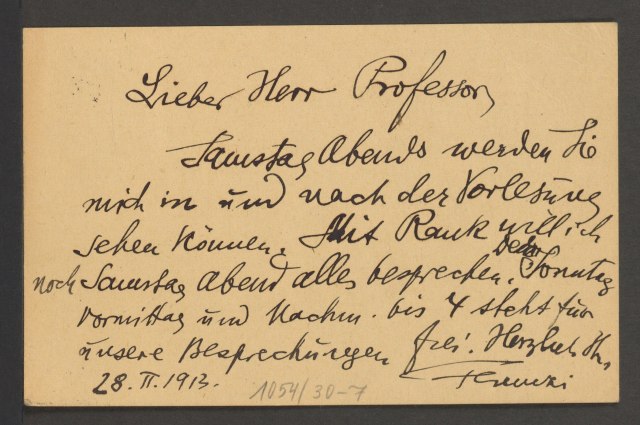 Lieber Herr Professor,
Samstag Abends werden Sie
mich in und nach der Vorlesung
sehen können. Mit Rank will ich
noch Samstag abend alles besprechen. Der Sonntag
vormittag und Nachm. bis 4 steht für
unsere Besprechungen frei. Herzlich Ihr
Ferenczi
28. II. 1913.
1054/30-7